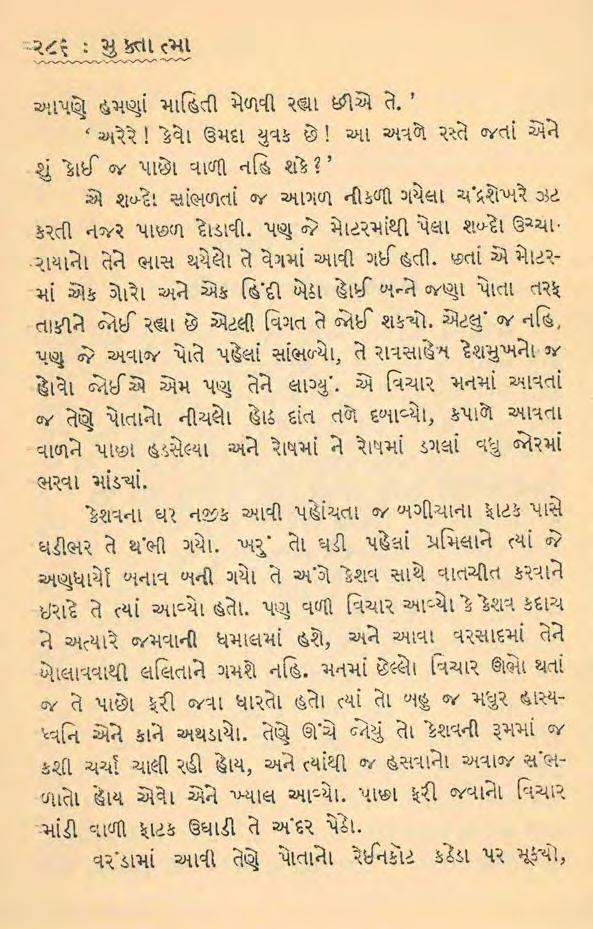 ૨૮૬ : મુક્તાત્મા
આપણે હમણાં માહિતી મેળવી રહ્યા છીએ તે.’
‘ અરેરે ! કેવો ઉમદા યુવક છે ! આ અવળે રસ્તે જતાં એને
શું કોઈ જ પાછો વાળી નહિ શકે ?’
એ શબ્દો સાંભળતાં જ આગળ નીકળી ગયેલા ચંદ્રશેખરે ઝટ
કરતી નજર પાછળ દોડાવી. પણ જે મોટરમાંથી પેલા શબ્દો ઉચ્ચા-
રાયાનો તેને ભાસ થયેલો તે વેગમાં આવી ગઈ હતી. છતાં એ મોટર-
માં એક ગોરો અને એક હિંદી બેઠા હોઈ બન્ને જણા પોતા તરફ
તાકીને જોઈ રહ્યા છે એટલી વિગત તે જોઈ શકચો. એટલું જ નહિ,
પણ જે અવાજ પોતે પહેલાં સાંભળ્યો, તે રાવસાહેબ દેશમુખનો જ
હોવો જોઈએ એમ પણ તેને લાગ્યું. એ વિચાર મનમાં આવતાં
જ તેણે પોતાનો નીચલો હોઠ દાંત તળે દબાવ્યો, કપાળે આવતા
વાળને પાછા હડસેલ્યા અને રોષમાં ને રોષમાં ડગલાં વધુ જોરમાં
ભરવા માંડચાં.
કેશવના ઘર નજીક આવી પહોંચતા જ બગીચાના ફાટક પાસે
ઘડીભર તે થંભી ગયો. ખરું તો ઘડી પહેલાં પ્રમિલાને ત્યાં જે
અણધાર્યો બનાવ બની ગયો તે અંગે કેશવ સાથે વાતચીત કરવાને
ઇરાદે તે ત્યાં આવ્યો હતો. પણ વળી વિચાર આવ્યો કે કેશવ કદાચ
ને અત્યારે જમવાની ધમાલમાં હશે, અને આવા વરસાદમાં તેને
બોલાવવાથી લલિતાને ગમશે નહિ. મનમાં છેલ્લો વિચાર ઊભો થતાં
જ તે પાછો ફરી જવા ધારતો હતો ત્યાં તો બહુ જ મધુર હાસ્ય-
ધ્વનિ એને કાને અથડાયો. તેણે ઊંચે જોયું તો કેશવની રૂમમાં જ
કશી ચર્ચા ચાલી રહી હોય, અને ત્યાંથી જ હસવાનો અવાજ સંભ-
ળાતો હોય એવો એને ખ્યાલ આવ્યો. પાછા ફરી જવાનો વિચાર
માંડી વાળી ફાટક ઉઘાડી તે અંદર પેઠો.
વરંડામાં આવી તેણે પોતાનો રેઈનકોટ કઠેડા પર મૂકચો,